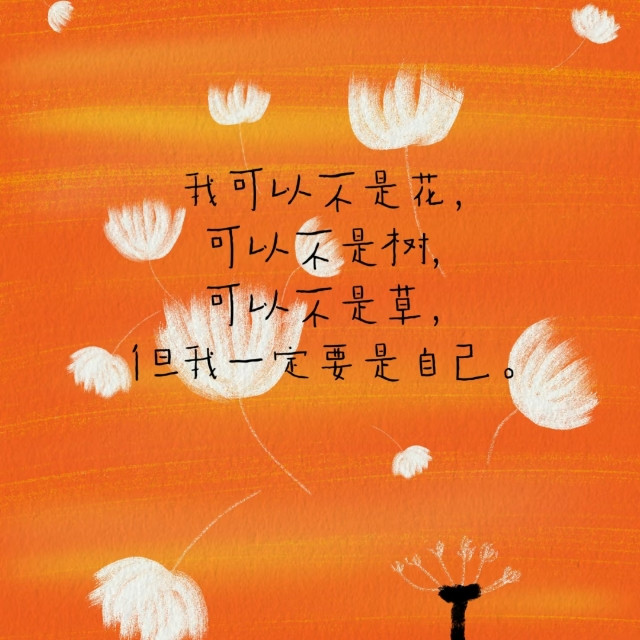 我可以不是花，
可以不是树，
可以不是草，
但我一定要是自己。